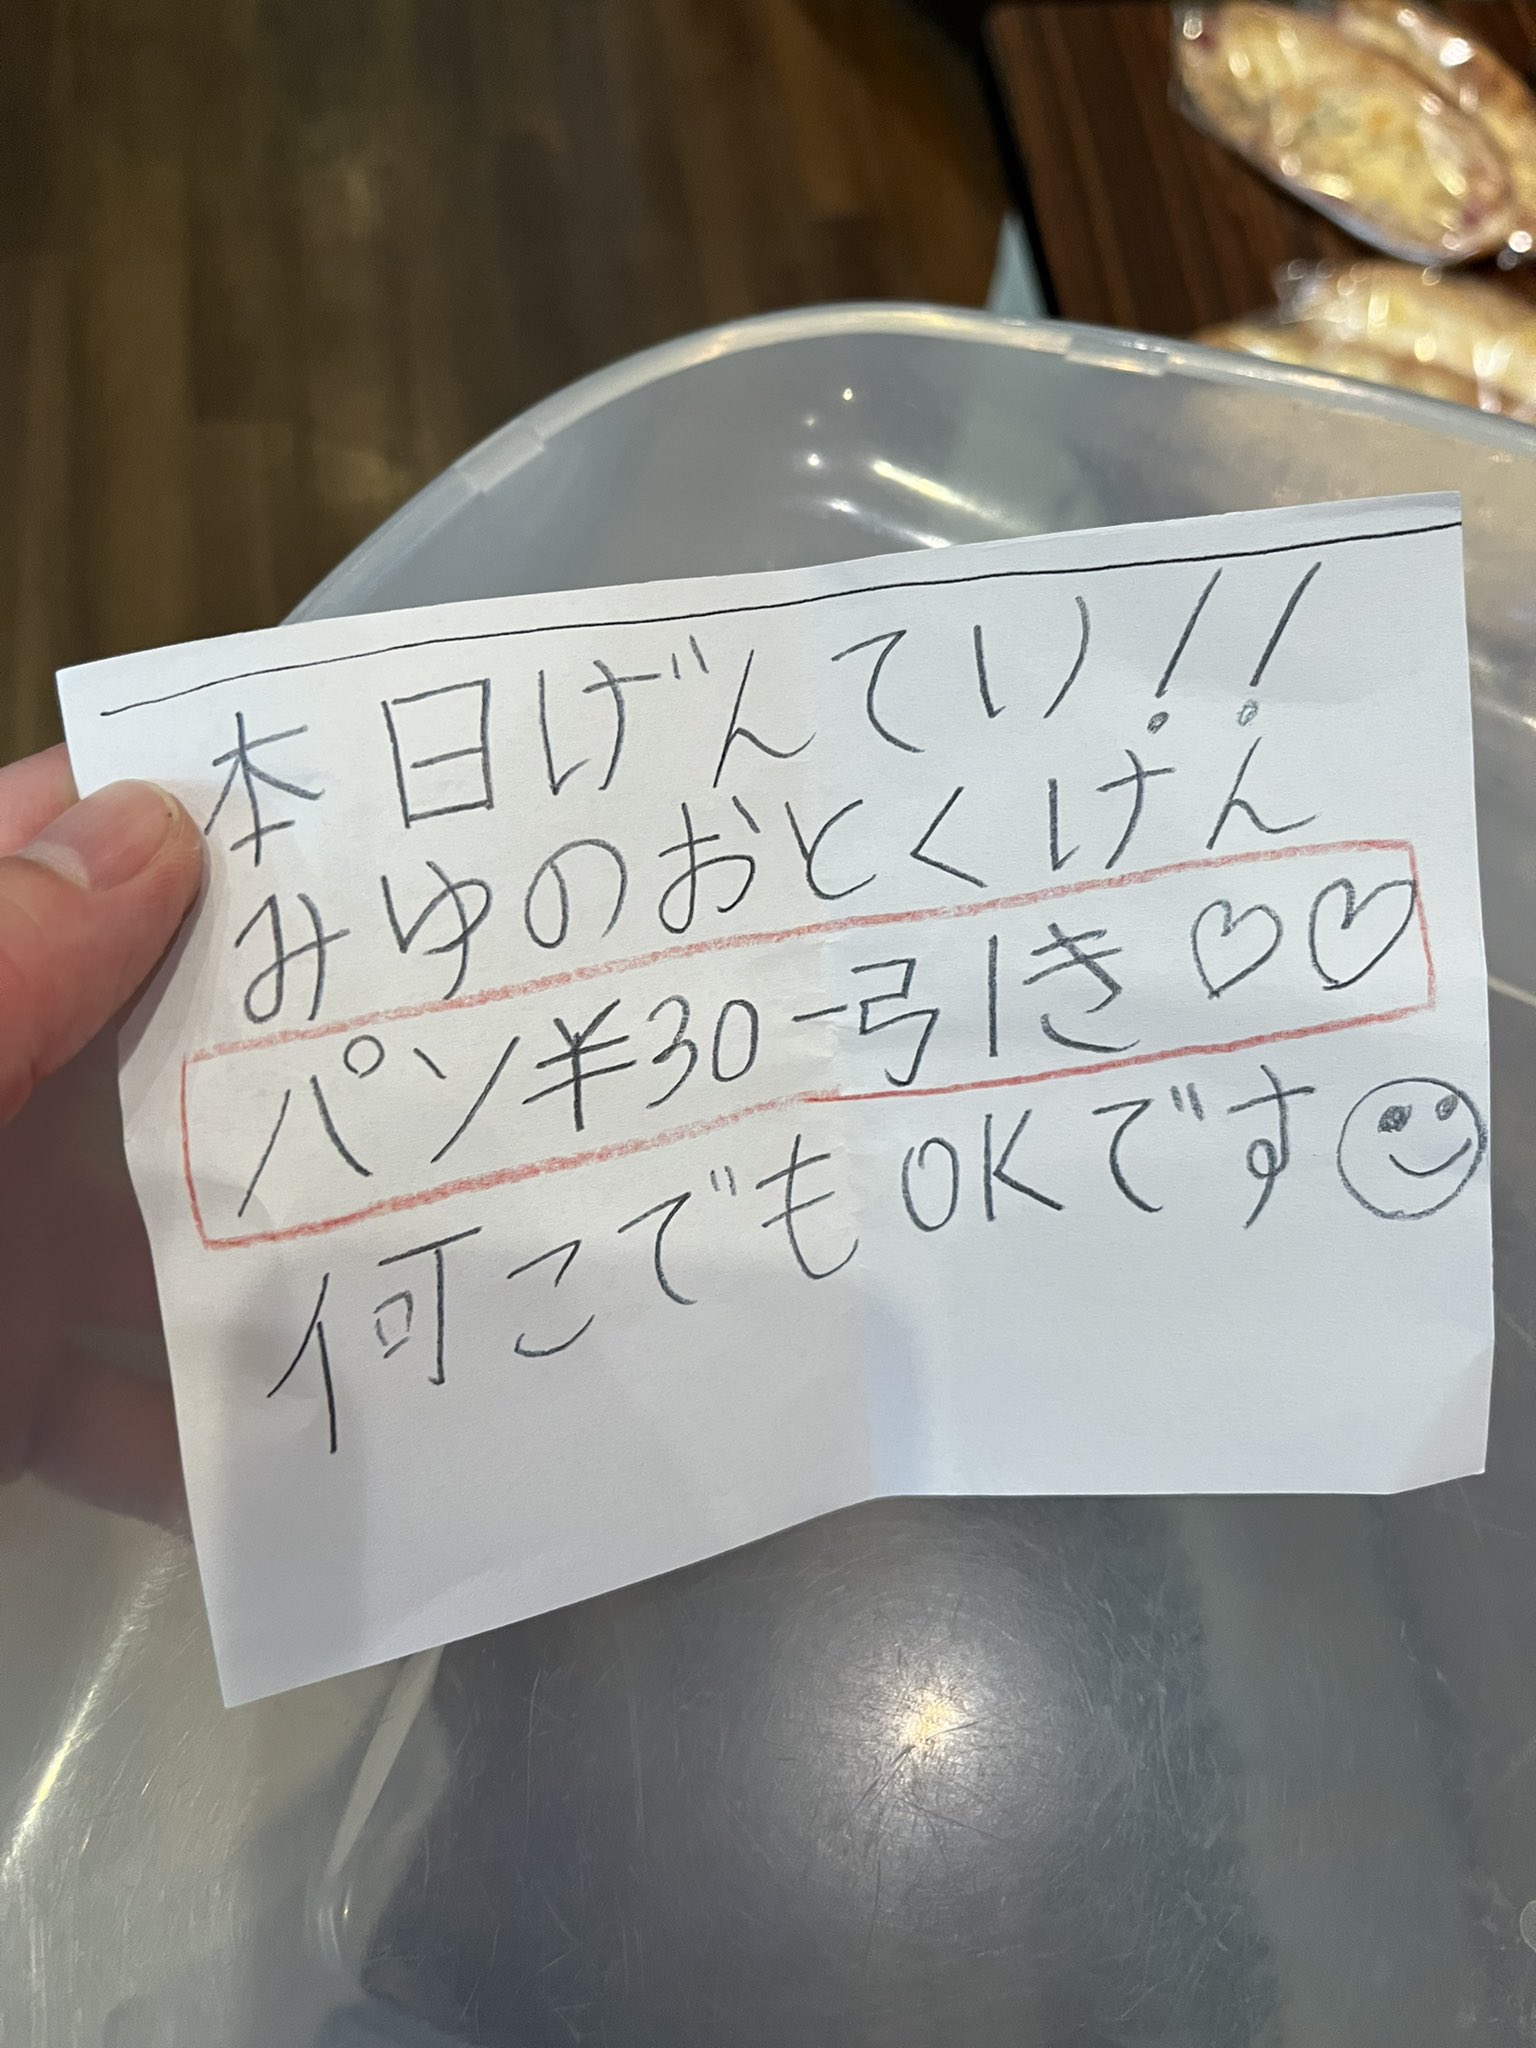 本日げんてい!!
みゆのおとくけん
パン¥30-引き♡♡
何こでもOKです☺